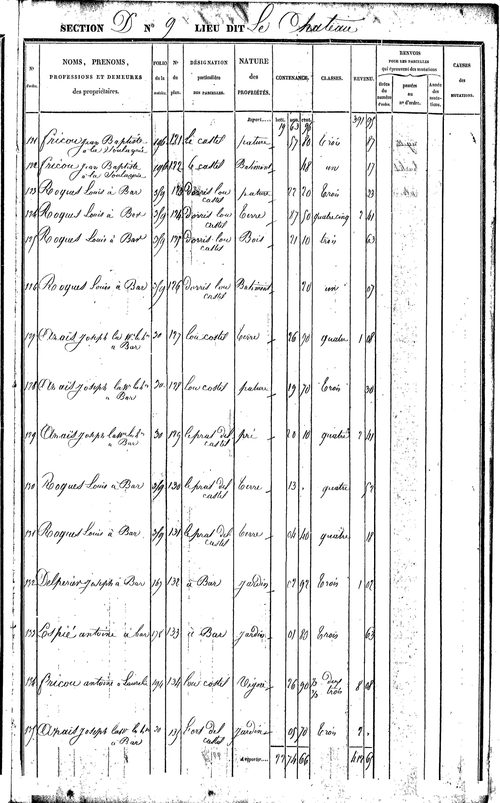 SECTION D N° 9 LIEU DIT Le Chateau
N° d'ordre. NOMS, PRENOMS, PROFESSIONS ET DEMEURES des propriétaires. FOLIO de la matrice. N° du plan. DÉSIGNATION particulière DES PARCELLES. NATURE des PROPRIÉTÉS. CONTENANCE. CLASSES. REVENU. RENVOIS POUR LES PARCELLES qui éprouvent des mutations CAUSES des MUTATIONS.
tirées du numéro d'ordre portées au n° d'ordre. Année des mutations.
Report 19 63 96 391 95
121 Fricou Jean Baptiste à la Voulagnie 196 121 Le castel pature 57 80 trois 17
122 Fricou Jean Baptiste à la Voulagnie 196 122 Le castel Batiment 48 un 17
123 Roques Louis à Bar 319 123 Dorris lou castel pature 22 20 trois 23
124 Roques Louis à Bar 319 124 Dorris lou castel Terre 87 50 quatre cinq 2 41
125 Roques Louis à Bar 319 125 Dorris lou castel Bois 21 10 trois 63
126 Roques Louis à Bar 319 126 dorris lou castel Batiment 20 un 07
127 Joseph à Bar 30 127 lou castel terre 26 90 quatre 1 08
128 Joseph à Bar 30 128 lou castel pature 19 70 trois 30
129 Joseph à Bar 30 129 le prat del castel pré 20 10 quatre 2 41
130 Roques Louis à Bar 319 130 le prat del castel terre 13 . quatre 52
131 Roques Louis à Bar 319 131 le prat del castel terre 04 40 quatre 18
132 Delperier Joseph à Bar 167 132 à Bar jardin 02 92 trois 1 02
133 Lespié antoine à bar 176 133 à Bar jardin 01 80 trois 63
134 Fricou antoine à 194 134 lou castel Vigne 26 90 deux trois 8 08
135 Joseph à Bar 30 135 Lort del castel jardin 05 70 trois 2 .
A reporter 22 74 66 412 65